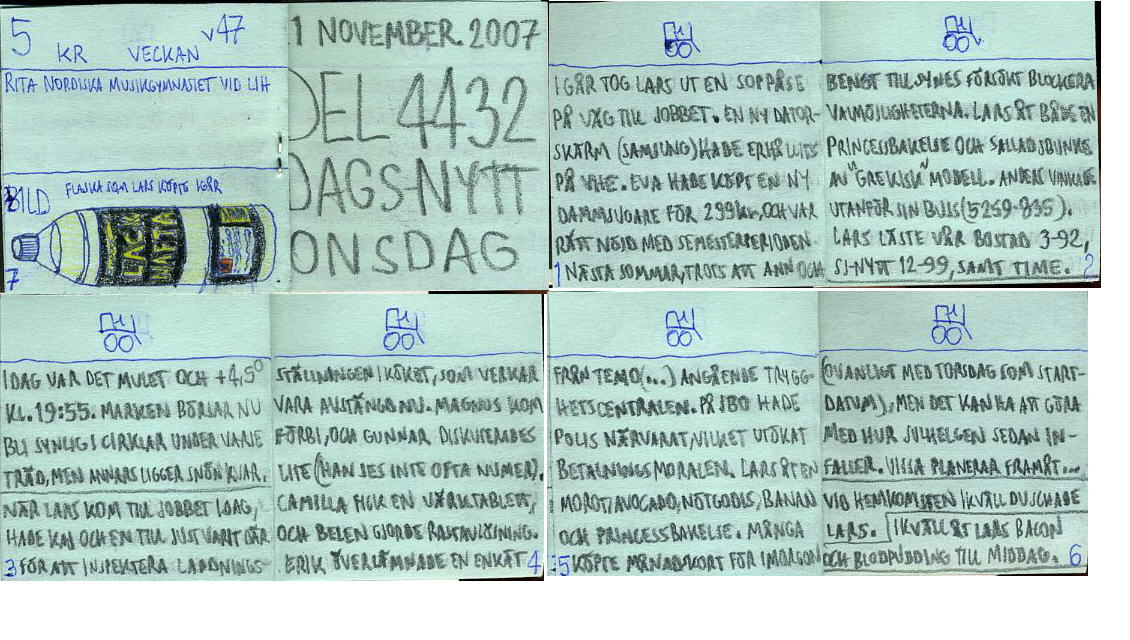 5 KR VECKAN v47
RITA NORDISKA MUSIKGYMNASIET VID LIH
BILD FLASKA SOM LARS KÖPTE IGÅR
LACK
MATTA
7
1 NOVEMBER 2007
DEL 4432
DAGS-NYTT
ONSDAG
I GÅR TOG LARS UT EN SOPPÅSE
PÅ VÄG TILL JOBBET. EN NY DATOR-
SKÄRM (SAMSUNG) HADE ERHÅLLITS
PÅ VHE. EVA HADE KÖPT EN NY
DAMMSUGARE FÖR 299 kr, OCH VAR
RÄTT NÖJD MED SEMESTERPERIODEN
1 NÄSTA SOMMAR, TROTS ATT ANN OCH
BENGT TILL SYNES FÖRSÖKT BLOCKERA
VALMÖJLIGHETERNA. LARS ÅT BÅDE EN
PRINCESSBAKELSE OCH SALLADSBUNKE
AV "GREKISK" MODELL. ANDERS VINKADE
UTANFÖR SIN BUSS (5259-835).
LARS LÄSTE VÅR BOSTAD 3-92,
SJ-NYTT 12-99, SAMT TIME. 2
IDAG VAR DET MULET OCH +4,5°
KL. 19:55. MARKEN BÖRJAR NU
BLI SYNLIG I CIRKLAR UNDER VARJE
TRÄD, MEN ANNARS LIGGER SNÖN KVAR.
NÄR LARS KOM TILL JOBBET IDAG,
HADE KAJ OCH EN TILL JUST VARIT DÄR
3 FÖR ATT INSPEKTERA LADDNINGS-
STÄLLNINGEN I KÖKET, SOM VERKAR
VARA AVSTÄNGD NU. MAGNUS KOM
FÖRBI, OCH GUNNAR DISKUTERADES
LITE (HAN SES INTE OFTA NUMER).
CAMILLA FICK EN VÄRKTABLETT,
OCH BELEN GJORDE RASTAVLÖSNING.
ERIK ÖVERLÄMNADE EN ENKÄT 4
FRÅN TEMO (...) ANGÅENDE TRYGG-
HETSCENTRALEN. PÅ JBO HADE
POLIS NÄRVARAT, VILKET UTÖKAT
BETALNINGSMORALEN. LARS ÅT EN
MOROT/AVOCADO, NÖTGODIS, BANAN
OCH PRINCESSBAKELSE. MÅNGA
5 KÖPTE MÅNADSKORT FÖR IMORGON
(OVANLIGT MED TORSDAG SOM START-
DATUM), MEN DET KAN HA ATT GÖRA
MED HUR JULHELGEN SEDAN IN-
FALLER. VISSA PLANERAR FRAMÅT...
VID HEMKOMSTEN IKVÄLL DUSCHADE
LARS. IKVÄLL ÅT LARS BACON
OCH BLODPUDDING TILL MIDDAG. 6